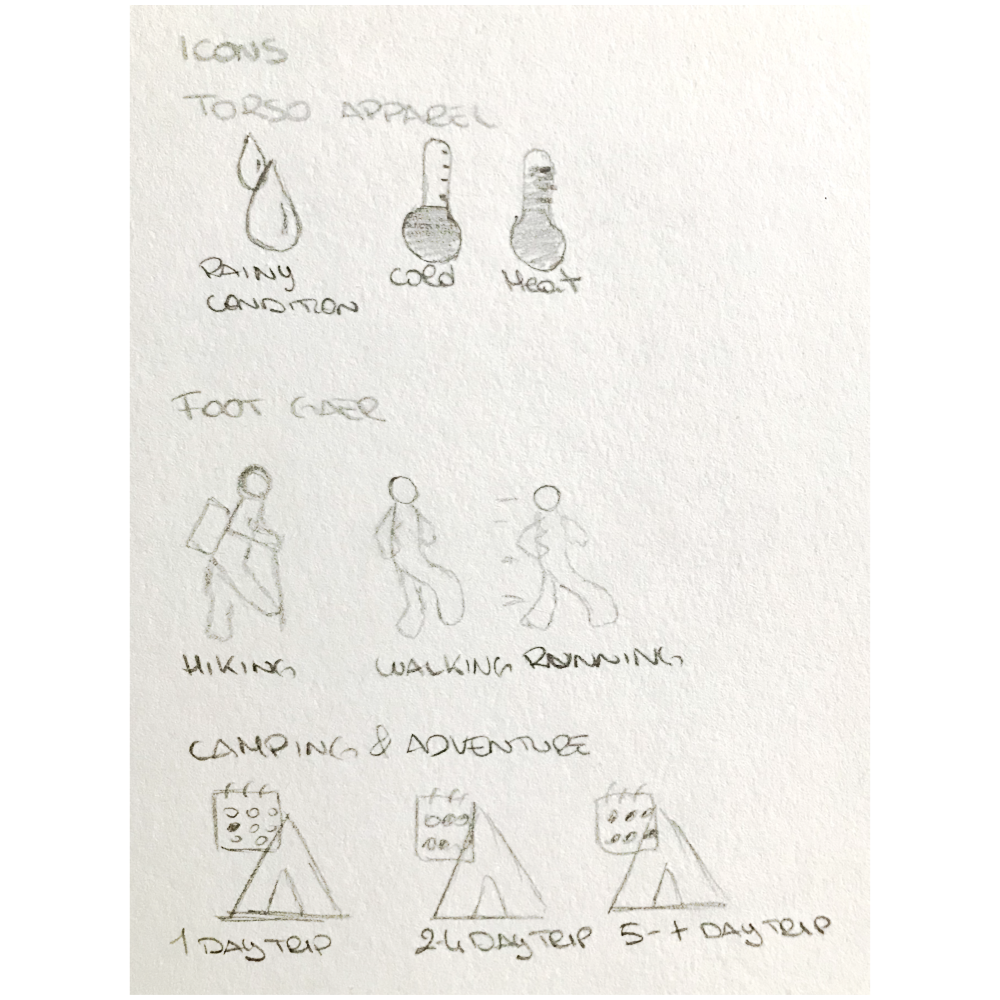 ICONS
TORSO APPAREL
RAINY
CONDITION
Cold
Heat
FOOT GAER
HIKING
WALKING
RUNNING
CAMPING & ADVENTURE
1 DAY TRIP
2-4 DAY TRIP
5-+ DAY TRIP